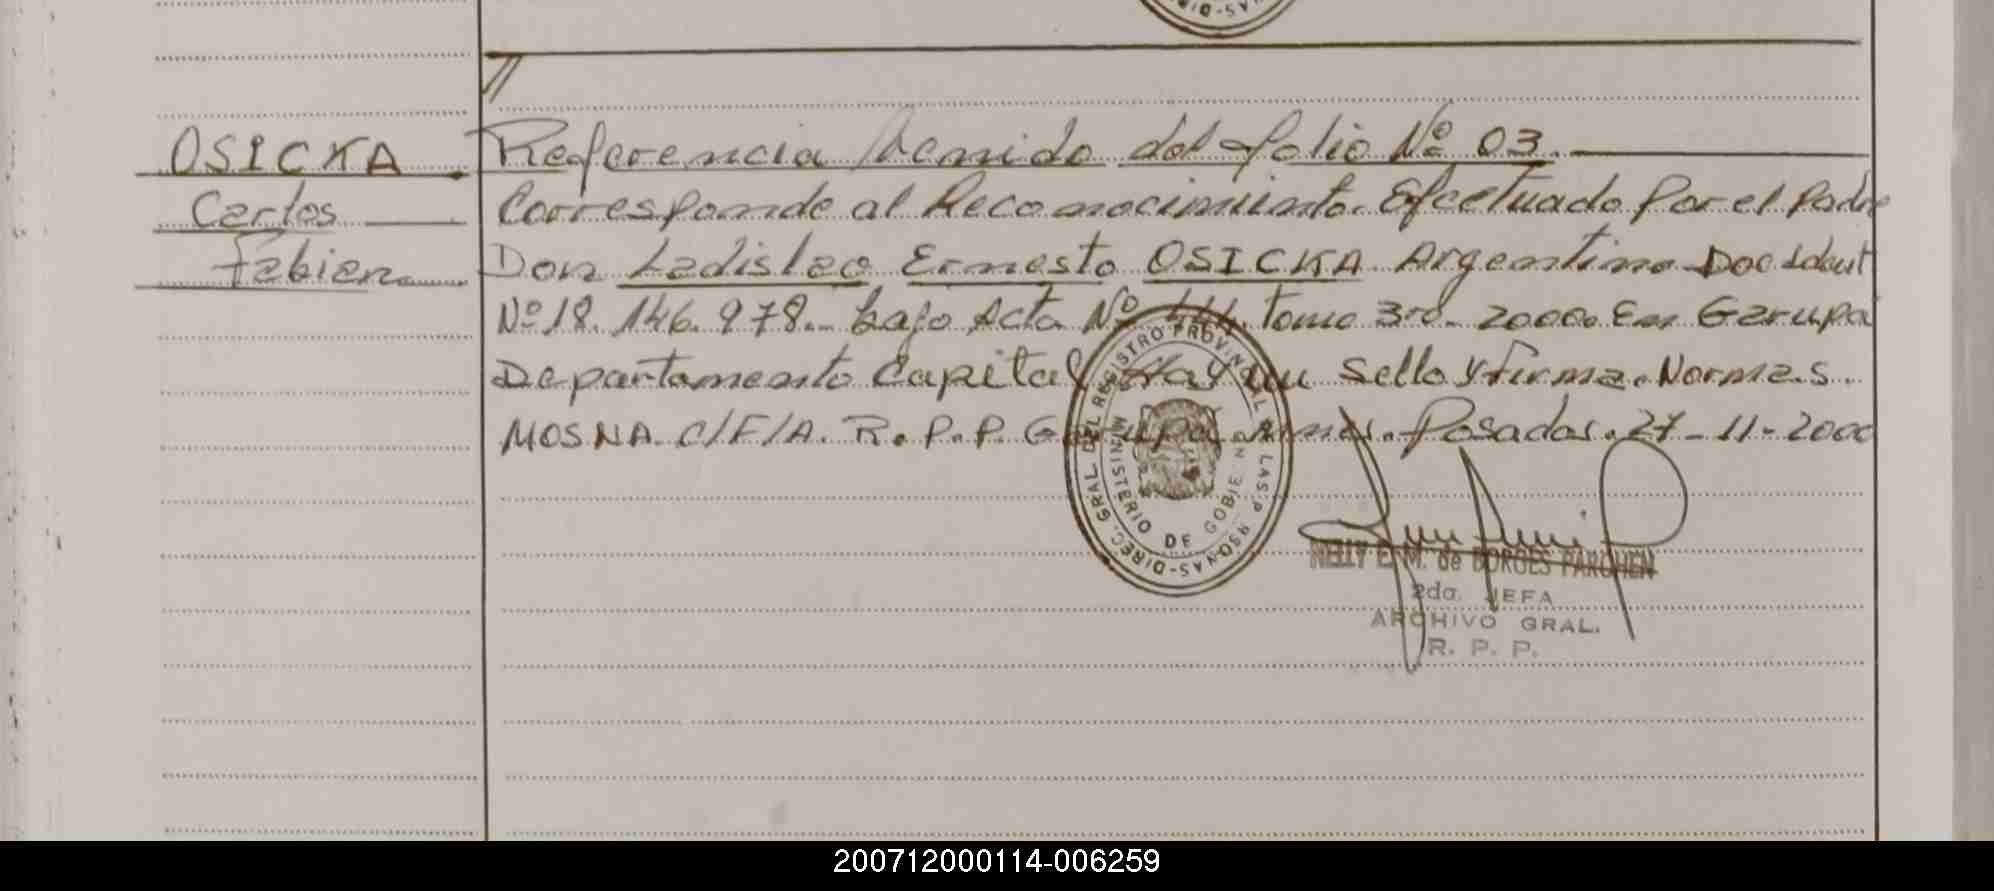 OSICKA
Carlos
Fabian
Referencia Venida del folio Nº 03.
Corresponde al Reconocimiento. Efectuado Por el Padre
Don Ladislao Ernesto OSICKA Argentino Doc Ident
Nº 18.146.978. bajo Acta Nº 444. tomo 3ro. 2000. En Garupa
Departamento Capital Hay un Sello y firma. Norma. S.
MOSNA. C/F/A. R. P. P. Garupa Mnes. Posadas. 27-11-2000
DIREC. GRAL. DEL REGISTRO PROVINCIAL LAS PERSONAS
MINISTERIO DE GOBIERNO
NELLY E. M. de BORGES PARCHEN
2da. JEFA
ARCHIVO GRAL.
R. P. P.
200712000114-006259